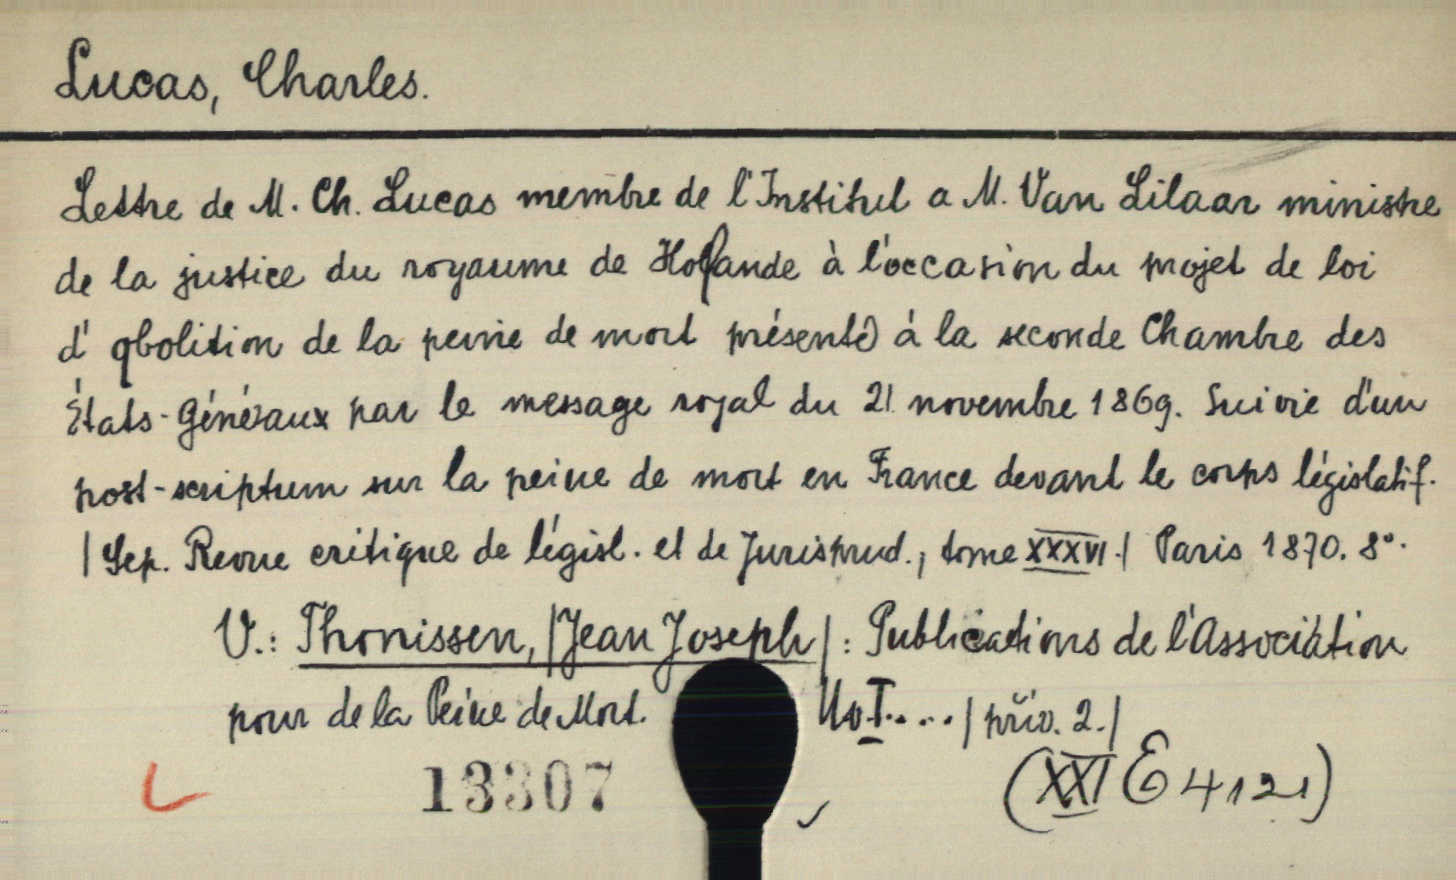 Lucas, Charles.
Lettre de M. Ch. Lucas membre de l'Institut a M. Van Lilaar ministre
de la justice du royaume de Hollande à l'occasion du projet de loi
d'abolition de la peine de mort présenté à la seconde Chambre des
États-Généraux par le message royal du 21 novembre 1869. Suivie d'un
post-scriptum sur la peine de mort en France devant le corps législatif.
/Sep. Revue critique de législ. et de Jurisprud., tome XXXVI./ Paris 1870. 8°.
V.: Thonissen, /Jean Joseph/: Publications de l'Association
pour de la Peine de Mort. No I..... /přív. 2./
13307
(XXI E 4121)